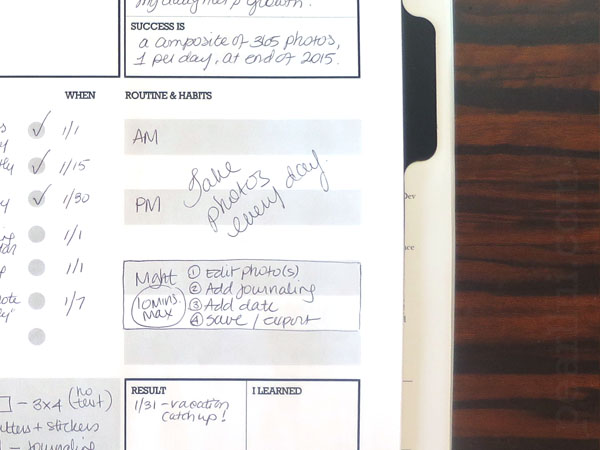 my daughter's growth.
SUCCESS IS
a composite of 365 photos,
1 per day, at end of 2015.
WHEN
ROUTINE & HABITS
1/1
AM
1/15
Take
photos
every day.
1/30
PM
1/1
1/1
Night
10 mins.
max
① Edit photo(s)
② Add journaling
③ Add date
④ Save / export
1/7
Dev
RESULT
1/31 - vacation
catch up!
I LEARNED
- 3x4 (no text)
+ stickers
- journaling